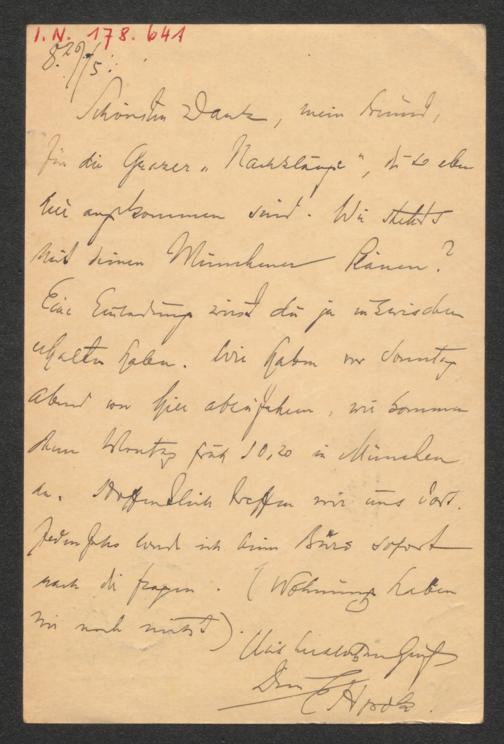 I. N. 178.641
8. 29/5.
Schönsten Dank, mein Freund,
für die Grazer „Nachklänge“, die so eben
hier angekommen sind. Wie steht's
mit deinen Münchener Plänen?
Eine Einladung wirst du ja inzwischen
erhalten haben. Wir haben vor Sonntag
abend von hier abzufahren, wir kommen
dann Montag früh 10,20 in München
an. Hoffentlich treffen wir uns dort.
Jedenfalls werde ich beim Büro sofort
nach dir fragen. (Wohnung haben
wir noch nicht).
Mit herzlichem Gruß
Dein